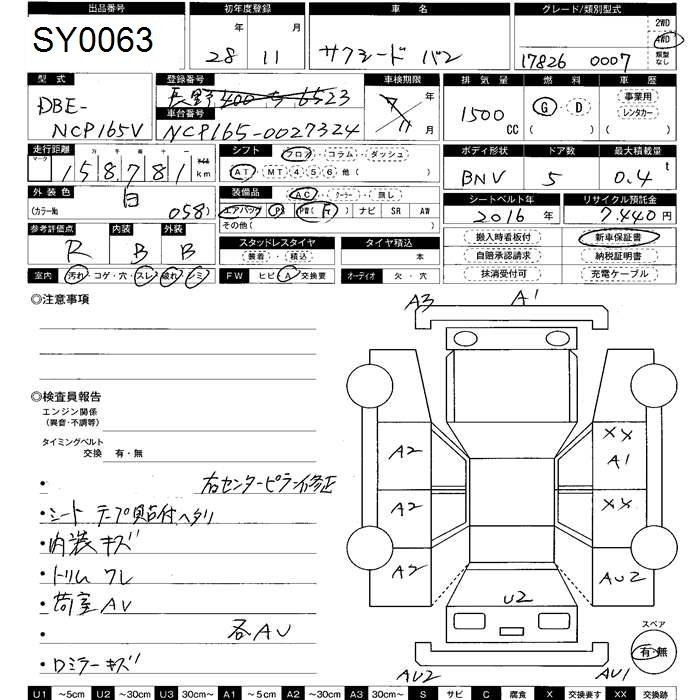 出品番号 初年度登録 車名 グレード/類別型式
SY0063 28年11月 サクシード バン 17826 0007 2WD 4WD 類型なし
型式 登録番号 車検期限 排気量 燃料 車歴
DBE-NCP165V 長野400ち6523 年 月 1500CC G・D ( ) 事業用 レンタカー ( )
車台番号
NCP165-0027324
走行距離 シフト ボディ形状 ドア数 最大積載量
マーク 十万 万 千 百 十 一 158781 マイル km フロア・コラム・ダッシュ BNV 5 0.4t
AT・MT(4・5・6 他( )
外装色 装備品 シートベルト年 リサイクル預託金
白 AC・クーラー・無し 2016年 7,440円
(カラーNo 058) エアバッグ PS PW ナビ SR AW
その他( )
参考評価点 内装 外装 スタッドレスタイヤ タイヤ積込 搬入時看板付 新車保証書
R B B (装着・積込) 本 自賠承認請求 納税証明書
室内 汚れ・コゲ・穴・スレ・破れ・シミ FW ヒビ・A・交換要 オーディオ 欠・穴 抹消受付可 充電ケーブル
◎注意事項
A3 A1
◎検査員報告
エンジン関係
(異音・不調等)
タイミングベルト
交換 有・無
XX
A2 A1
・ 右センターピラー修正
A2 XX
・シート テープ貼付ヘタリ
・内装 キズ
・トリム ワレ A2 AU2
・荷室 AV
U2
・ 各AU
スペア
有・無
・ロミラー キズ
AU2 AU1
U1 ～5cm U2 ～30cm U3 30cm～ A1 ～5cm A2 ～30cm A3 30cm～ S サビ C 腐食 X 交換要す XX 交換跡